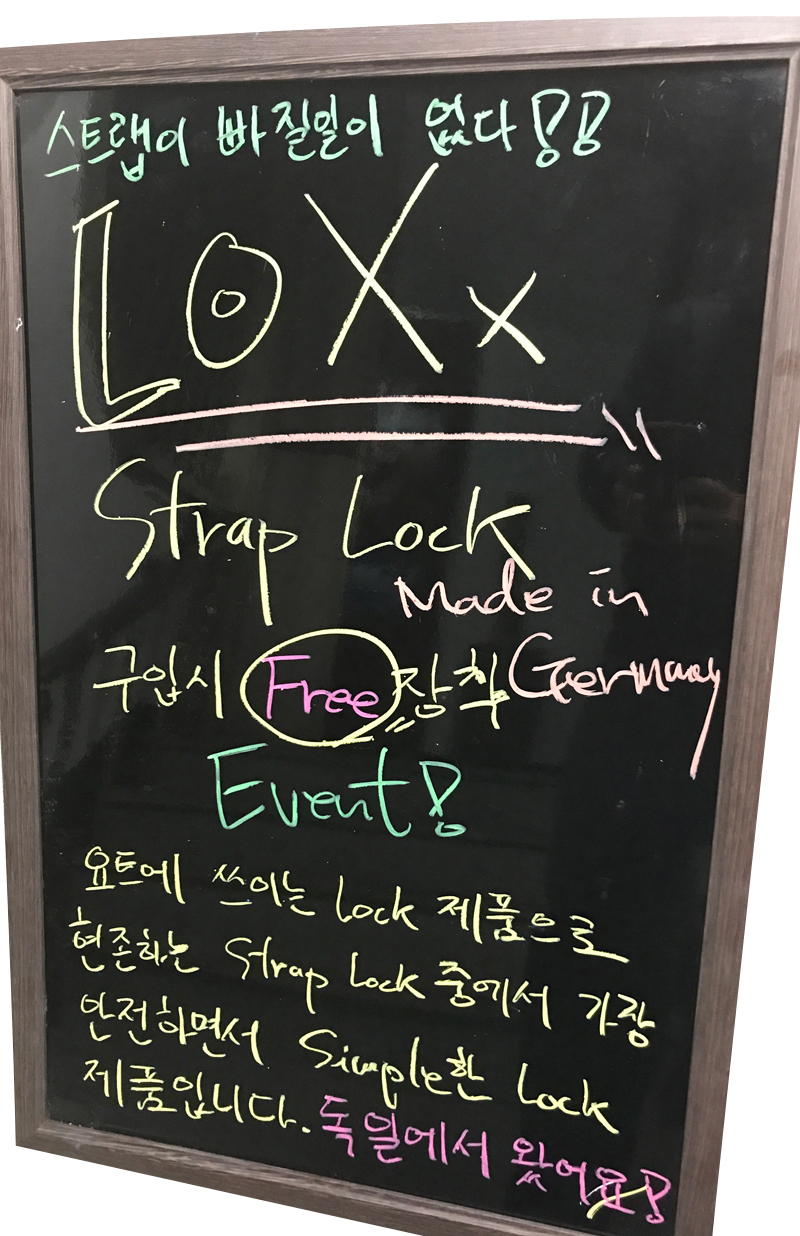 스트랩이 빠질일이 없다!!
LOXx
Strap Lock
Made in
Germany
구입시 Free 장착
Event!
요트에 쓰이는 Lock 제품으로
현존하는 Strap Lock 중에서 가장
안전하면서 Simple한 Lock
제품입니다. 독일에서 왔어요!